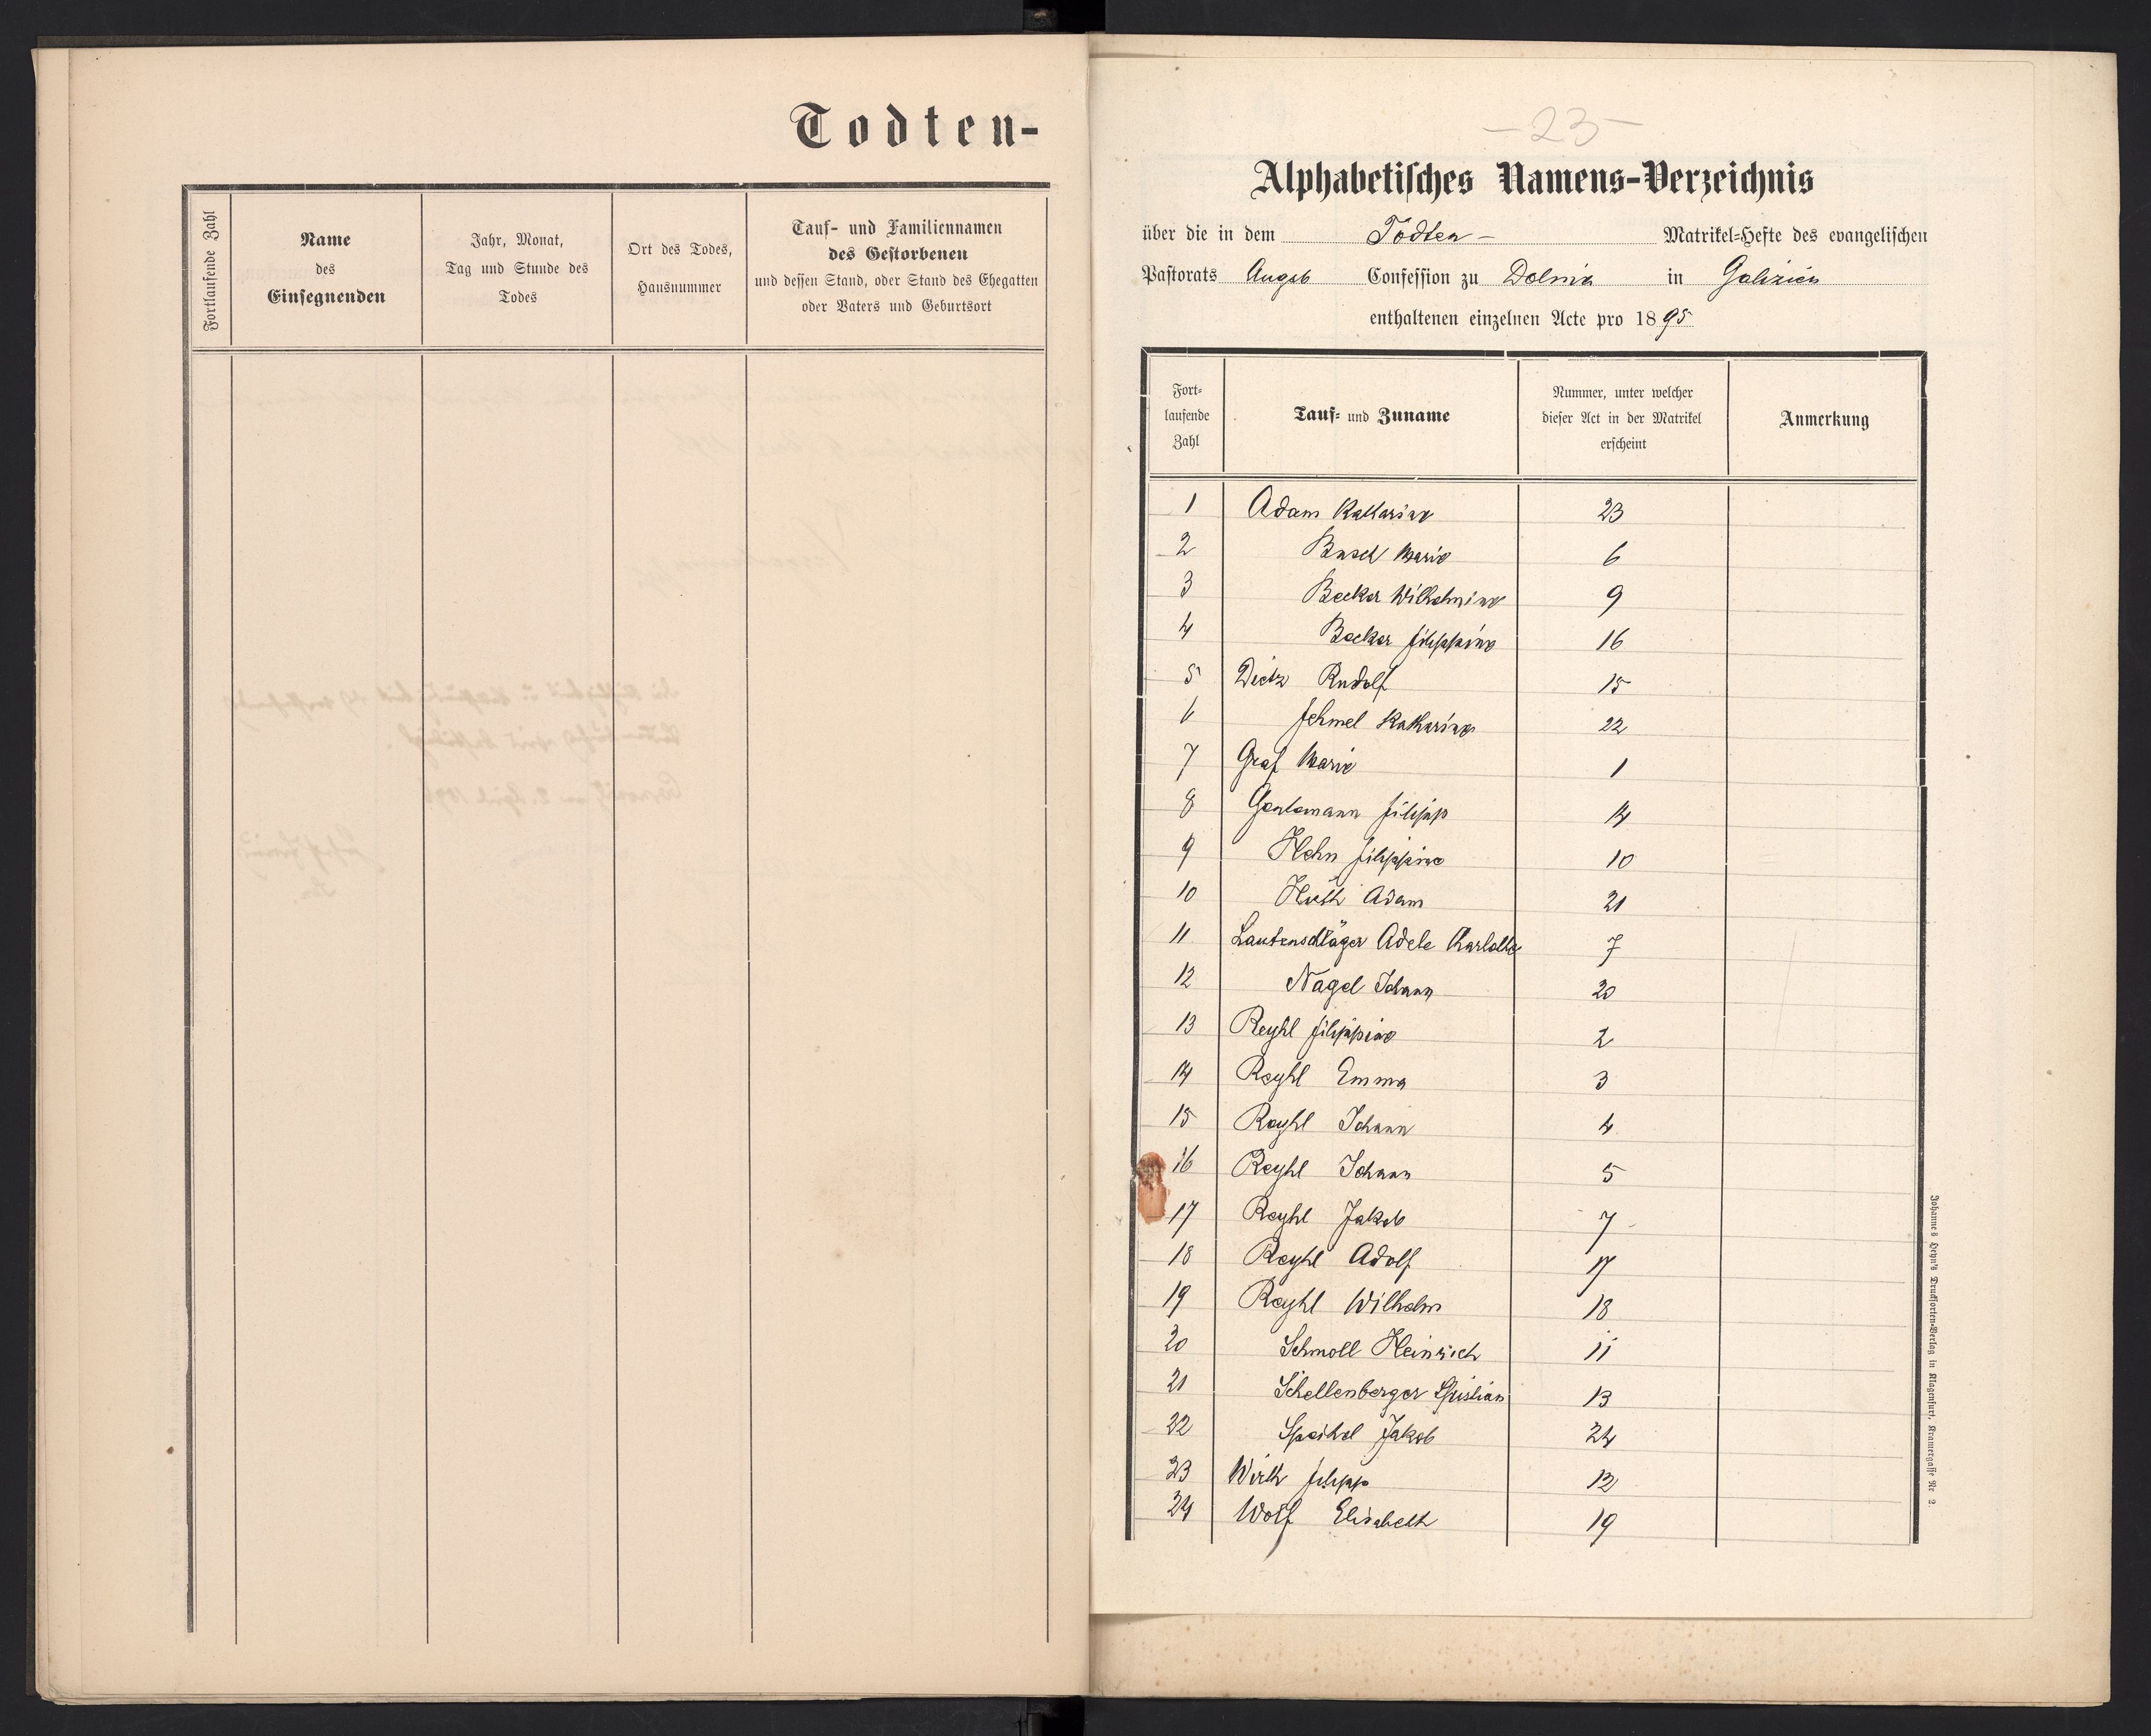 Todten-
Fortlaufende Zahl
Name
des
Einsegnenden
Jahr, Monat,
Tag und Stunde des
Todes
Ort des Todes,
Hausnummer
Tauf- und Familiennamen
des Gestorbenen
und dessen Stand, oder Stand des Ehegatten
oder Vaters und Geburtsort
-23-
Alphabetisches Namens-Verzeichnis
über die in dem Todten- Matrikel-Hefte des evangelischen
Pastorats Augsb Confession zu Dolina in Galizien
enthaltenen einzelnen Acte pro 1895
Fort-
laufende
Zahl
Tauf- und Zuname
Nummer, unter welcher
dieser Act in der Matrikel
erscheint
Anmerkung
1 Adam Katharine 23
2 Busch Marie 6
3 Becker Wilhelmine 9
4 Becker Filippine 16
5 Dietz Rudolf 15
6 Fehmel Katharine 22
7 Graf Marie 1
8 Gentemann Filipp 14
9 Hehn Filippine 10
10 Huth Adam 21
11 Lautenschläger Adele Charlotte 7
12 Nagel Johann 20
13 Reyhl Filippine 2
14 Reyhl Emma 3
15 Reyhl Johann 4
16 Reyhl Johann 5
17 Reyhl Jakob 7
18 Reyhl Adolf 17
19 Reyhl Wilhelm 18
20 Schmoll Heinrich 11
21 Schellenberger Christian 13
22 Speihel Jakob 24
23 Wirth Filipp 12
24 Wolf Elisabeth 19
Johannes Heyn's Drucksorten-Verlag in Klagenfurt, Kramergasse Nr. 2.